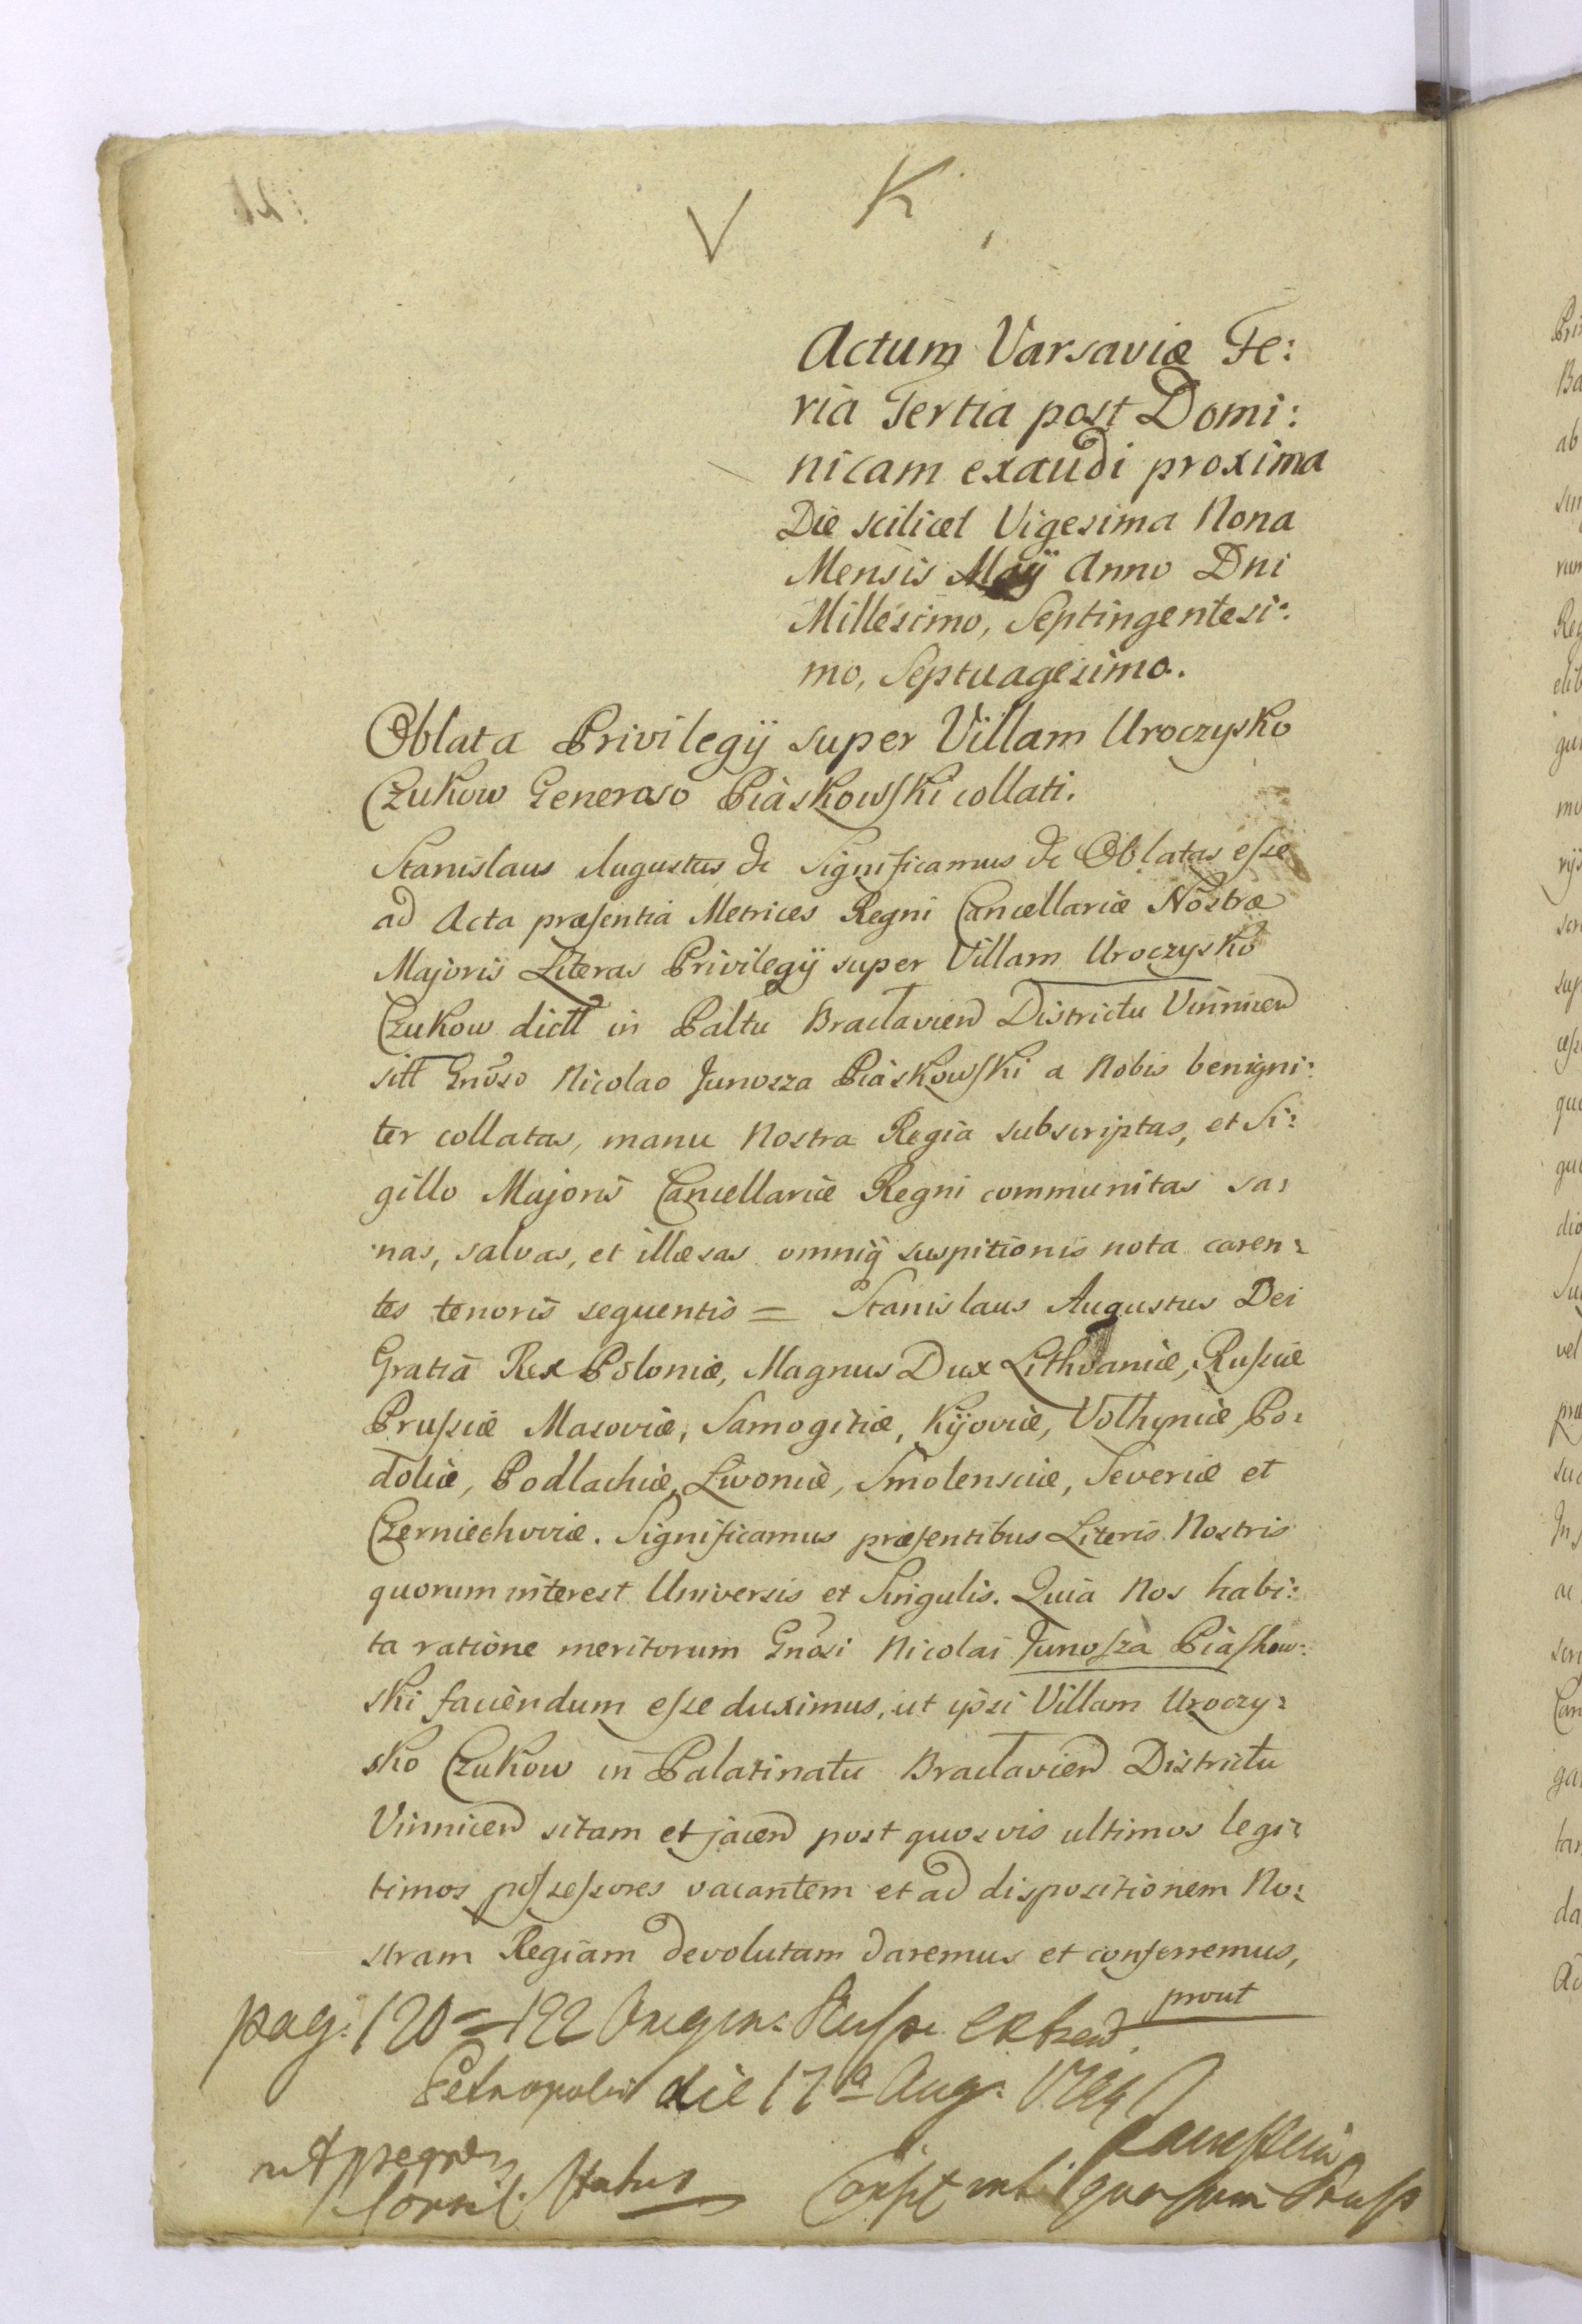 V K
Actum Varsaviæ Fe:
ria Tertia post Domi:
nicam exaudi proxima
Die scilicet Vigesima Nona
Mensis Maij Anno Dni
Millesimo, Septingentesi:
mo, Septuagesimo.
Oblata Privilegij super Villam Uroczysko
Czukow Generoso Piaskowski collati.
Stanislaus Augustus &c Significamus &c Oblatas esse
ad Acta præsentia Metrices Regni Cancellariæ Nostræ
Majoris Literas Privilegij super Villam Uroczysko
Czukow dictt in Paltu Braclavien Districtu Vinnicen
sitt Gnoso Nicolao Junosza Piaskowski a Nobis benigni:
ter collatas, manu Nostra Regia subscriptas, et Si:
gillo Majoris Cancellariæ Regni communitas sa:
nas, salvas, et illæsas omniq suspitionis nota caren:
tes tenoris sequentis = Stanislaus Augustus Dei
Gratia Rex Poloniæ, Magnus Dux Lithvaniæ, Russiæ
Prussiæ Masoviæ, Samogitiæ, Kijoviæ, Volhyniæ, Po:
doliæ, Podlachiæ, Livoniæ, Smolensciæ, Severiæ et
Czerniechoviæ. Significamus præsentibus Literis Nostris
quorum interest Universis et Singulis. Quia Nos habi:
ta ratione meritorum Gnosi Nicolai Junosza Piaskow:
ski faciendum esse duximus, ut ipsi Villam Uroczy:
sko Czukow in Palatinatu Braclavien Districtu
Vinnicen sitam et jacen post quosvis ultimos legi:
timos possessores vacantem et ad dispositionem No:
stram Regiam devolutam daremus et conferremus,
prout
pag: 120 = 122 Origin: extrad
Petropoli die 17a Aug:
Status